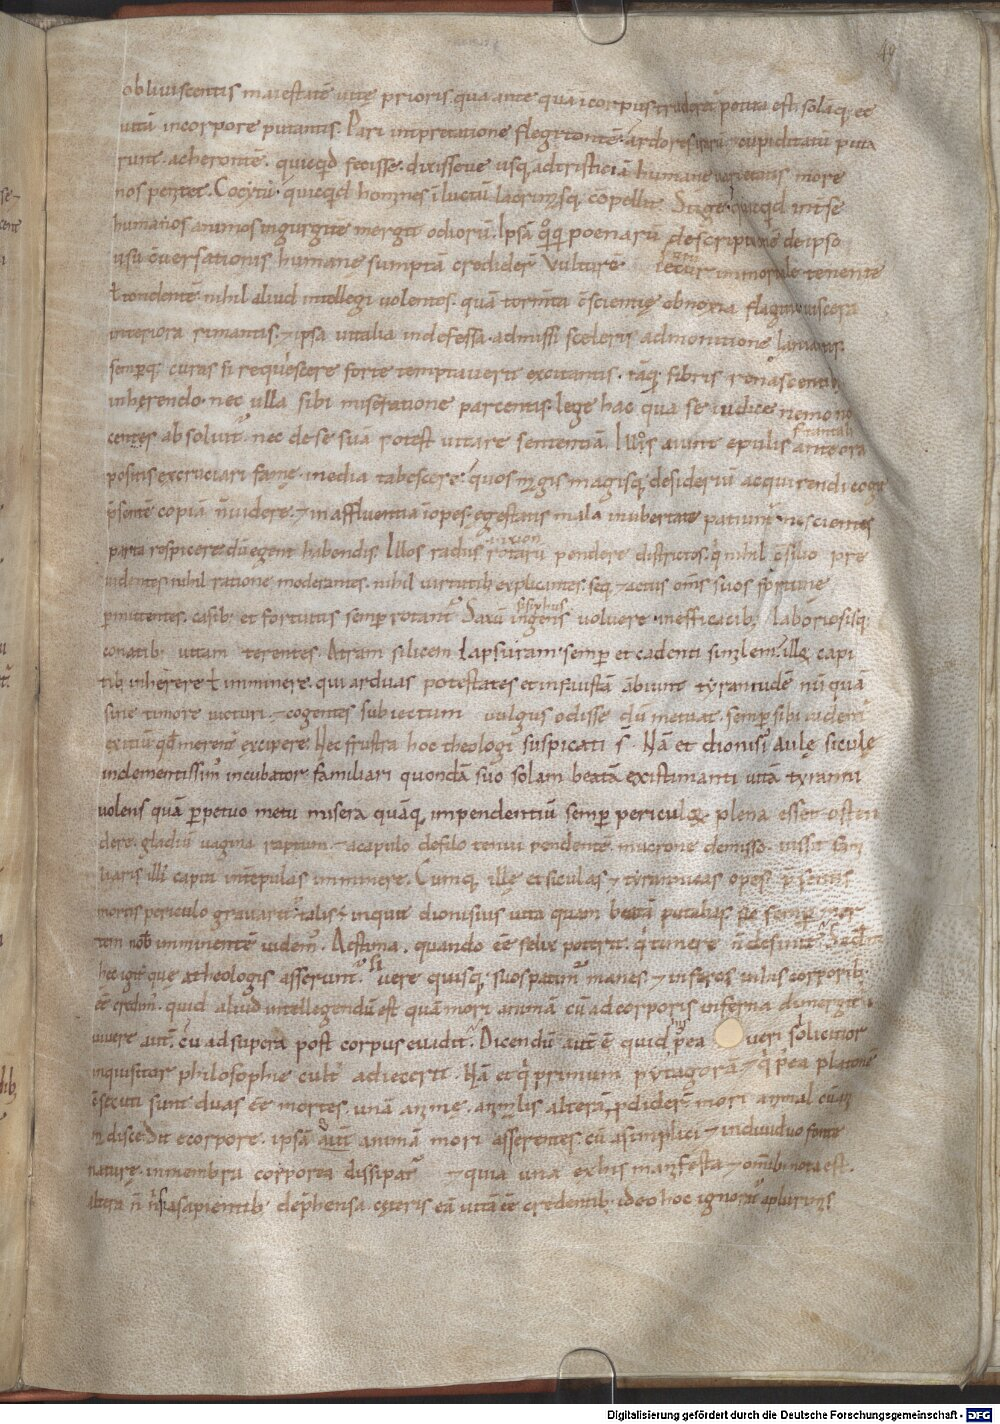 49
obliviscentis maiestatẽ vitę prioris qua ante quã ĩ corpus truderet᷑ potita est. solãq; eẽ
vitã in corpore putantis. Pari int̃pretatione flegetontẽ ardores irarũ ⁊ cupiditatũ puta
runt. acherontẽ. quicqd fecisse. dixisseve usq; ad tristiciã humane varietatis more
nos penitet. Cocytũ. quicqd homines ĩ luctũ lacrimasq; cõpellit. Stige quicqd int̃ se
humanos animos in gurgitẽ mergit odiorũ. Ipsã q̊q; poenarũ descriptionẽ de ipso
usu cõversationis humane sumptã credider̃ Vulturẽ iecur inmortale tenente
ł tondentẽ nihil aliud intellegi volentes. quã torm̃ta cõscientię obnoxia flagitio viscera
interiora rimantis. ⁊ ipsa vitalia indefessa. admissi sceleris admonitione laniantis.
semp̃q; curas si requiescere forte temptaverit excitantis. tãq; fibris renascentib;
inhęrendo. nec ulla sibi miseratione parcentis. lege hac qua se iudice nemo no
centes absolvit᷑. nec de se suã potest vitare sententiã. Illos aiunt epulis ante ora
.s. tantali
positis excruciari fame. inedia tabescere. quos magis magisq; desideriũ acquirendi cogit
p̃sentẽ copiã ñ videre. ⁊ in affluentia ĩopes. egestatis mala in ubertate patiunt᷑. nescientes
parta respicere. dũ egent habendis. Illos radiis rotarũ pendere districtos. q̃ nihil cõsilio pre
ixion
videntes. nihil ratione moderantes. nihil virtutib; explicantes. seq; ⁊ actus om̃s suos fortune
p̃mittentes. casib; et fortuitis semp̃ rotant᷑ Saxũ ingens volvere. inefficacib; laboriosisq;
sisyphus
conatib; vitam terentes. Atram silicem lapsuram semp̃ et cadenti similem. illoꝝ capi
tib; inhęrere ł imminere. qui arduas potestates et infaustã ãbiunt tyrannidẽ nũquã
sine timore victuri. ⁊ cogentes subiectum vulgus odisse dũ metuat. semp̃ sibi vident᷑
exitiũ qđ merent᷑ excipere. Nec frustra hoc theologi suspicati s̃. Nã et dionisi᷒ aulę siculę
indementissim᷒ incubator familiari quondã suo solam beatã existimanti vitã tyranni
volens quã p̱petuo metu misera quãq; inpendentiũ semp̃ periculoꝝ plena esset osten
dere. gladiũ vagina raptum. ⁊ a capulo de filo tenui pendentẽ. mucrone demisso. iussit fam̃
liaris illi᷒ capiti int̃ epulas imminere. Cumq; ille et siculas ⁊ tyrannicas opes. p̃sentis
mortis periculo gravaret᷑. talis ẽ inquit dionisius vita quam beatã putabas. sic semp̃ mor
tem nob imminentẽ videm᷒. Aestima. quando eẽ felix poterit. q̃ timere ñ desinit. Sed
hęc igit᷑ quę a theologis asserunt᷑. Si vere quisq; suos patim᷑ manes. ⁊ inferos in his corporib;
eẽ credim᷒. quid aliud intellegendũ est quã mori animã cũ ad corporis inferna dimergit᷑.
vivere aut̃. cũ ad supera post corpus evadit. Dicendũ aut̃ ẽ quid p̱ea veri sollicitior
inquisitor philosophie cult᷒ adiecerit. Nã et q̃ primum pytagorã ⁊ q̃ p̱ea platonẽ
cõsecuti sunt duas eẽ mortes. unã animę. animalis alterã. p̱dider̃ mori animal cũ ani
ma discedit e corpore. ipsã aut̃ animã mori asserentes cũ a simplici ⁊ individuo fonte
naturę. in membra corporea dissipat᷑ ⁊ quia una ex his manifesta ⁊ om̃ib; nota est.
altera ñ nisi a sapientib; dep̃hensa. cęteris eã vitã eẽ credentib; ideo hoc ignorat᷑ a plurimis
Digitalisierung gefördert durch die Deutsche Forschungsgemeinschaft - DFG